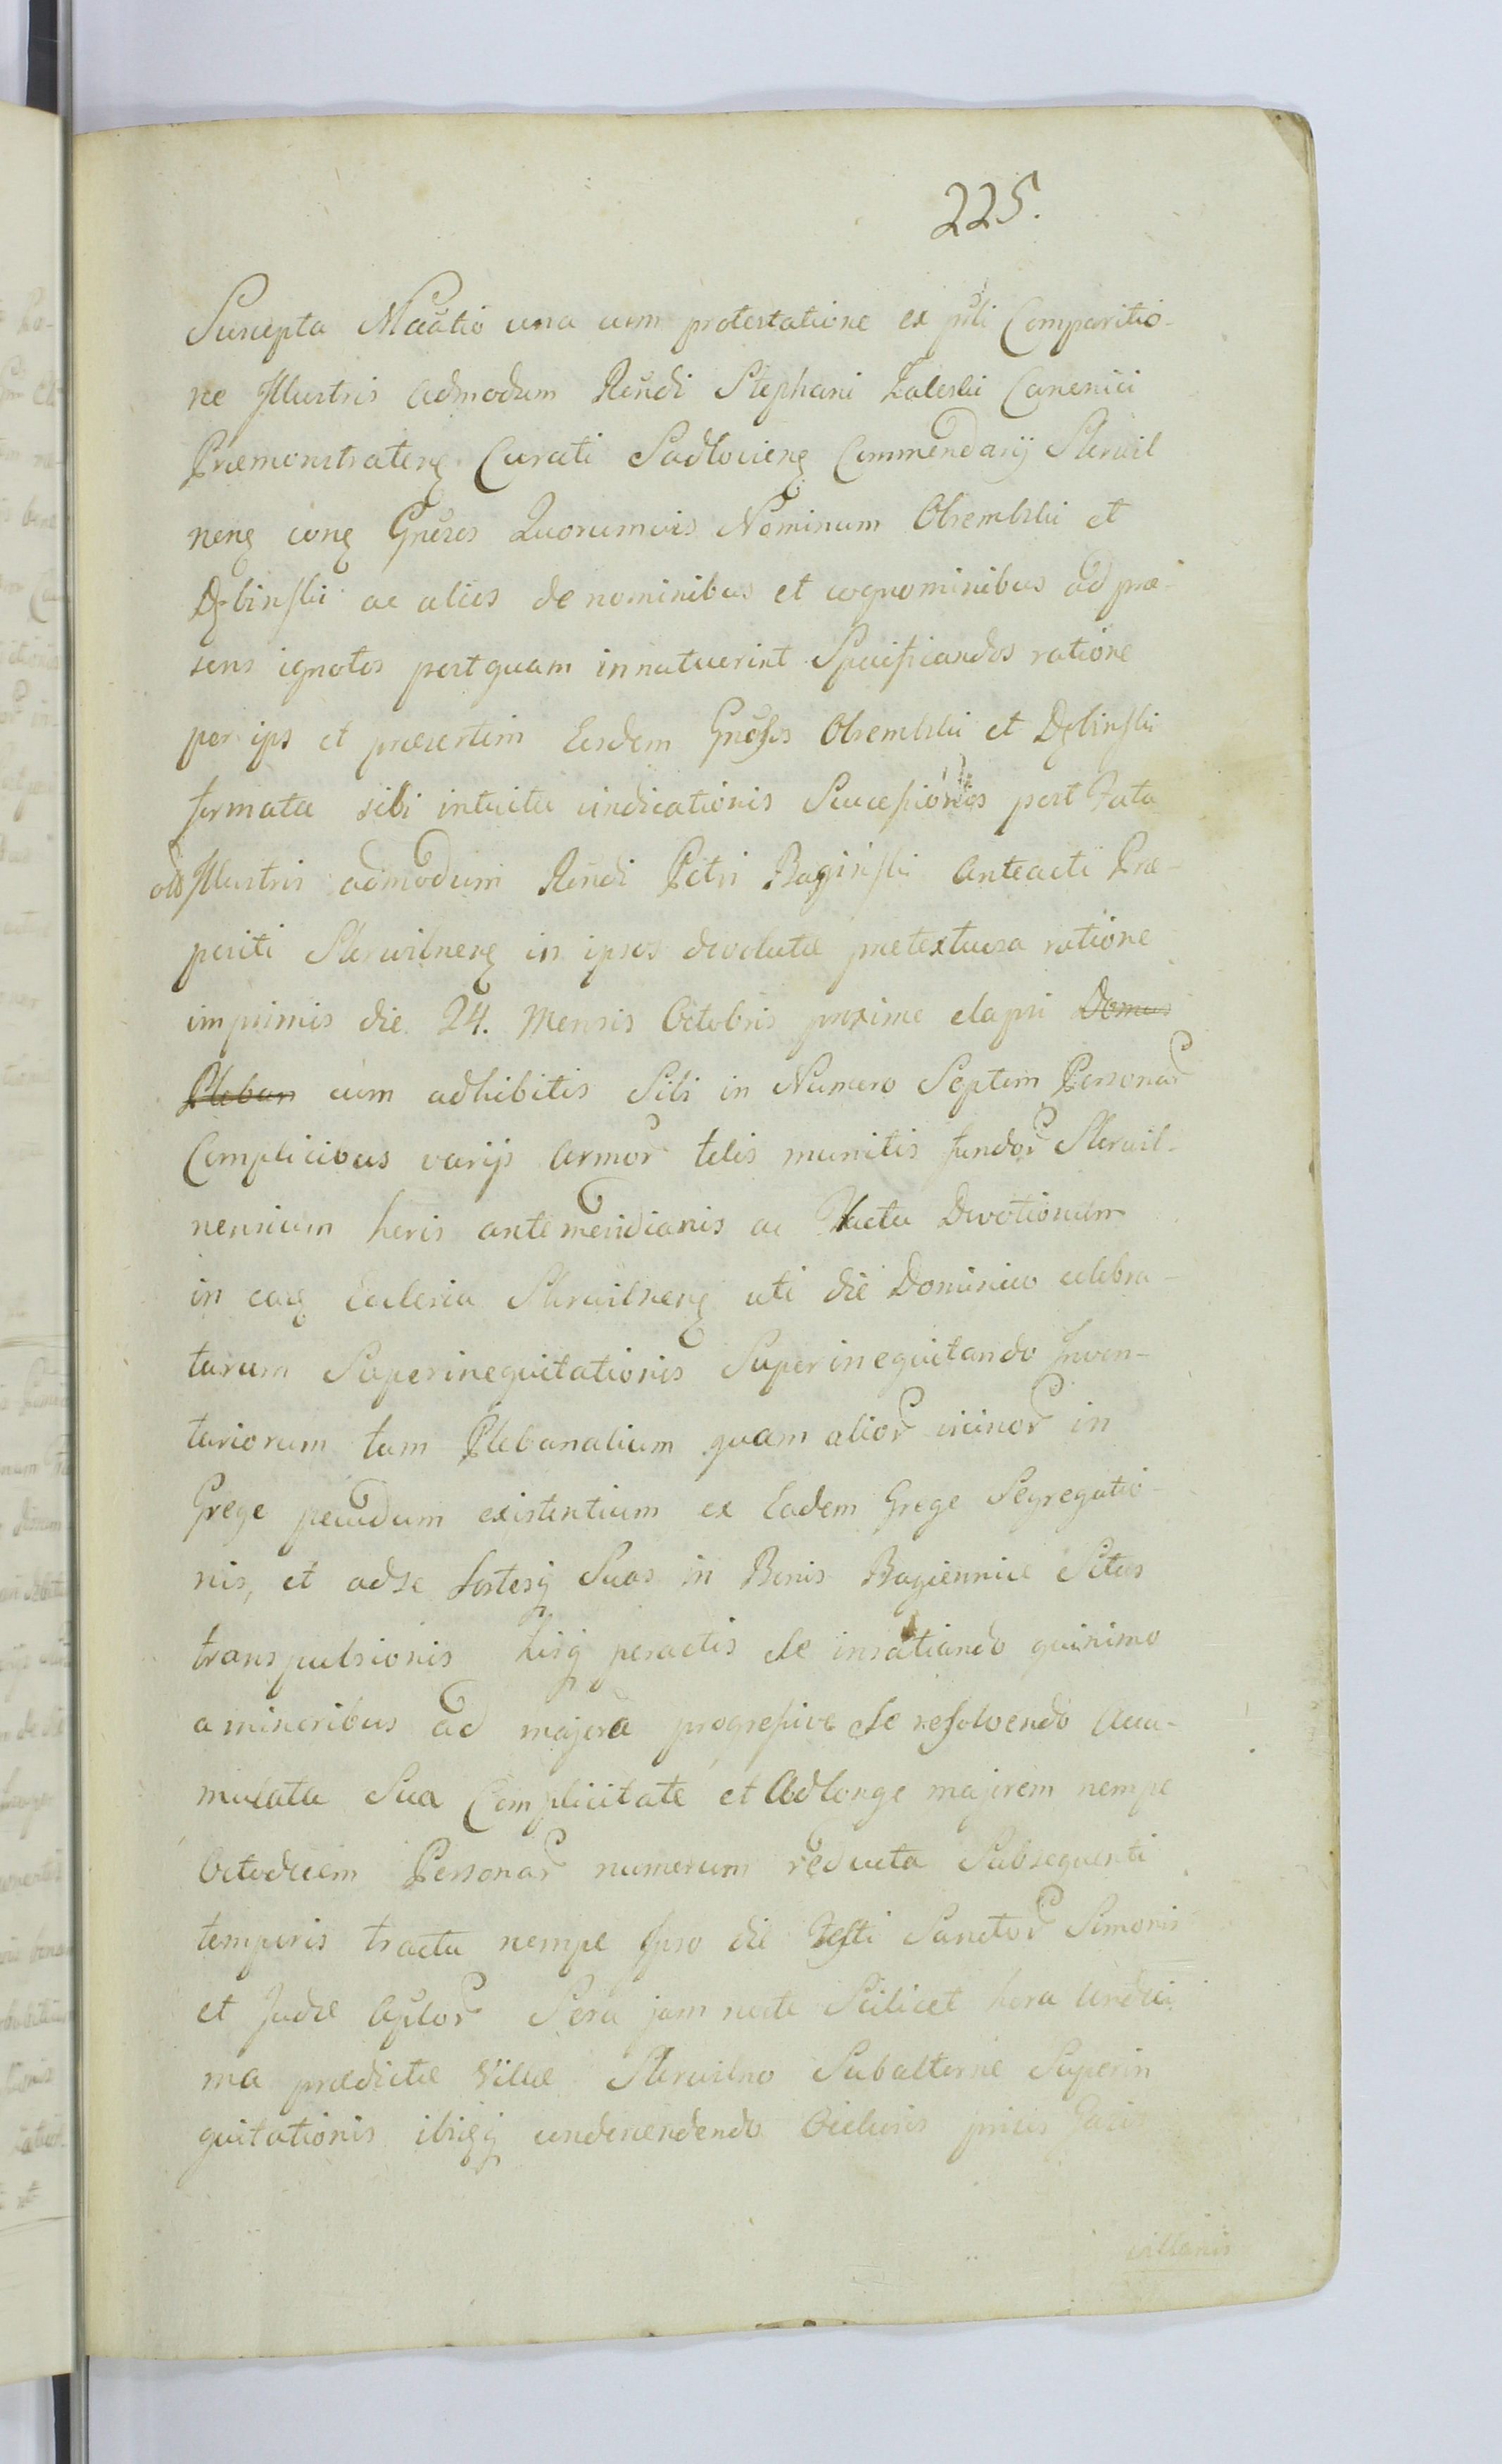 225.
Suscepta Mãtio una cum protestatione ex pñli Comparitio-
ne Illustris admodum Rñdi Stephani Zaleski Canonici
Præmonstrateñ. Curati Sadłovieñ Commendarij Skrwil
neñ coñ Gñosos Quorumvis Nominum Obrembski et
Dębinski ac alios de nominibus et cognominibus ad præ-
sens ignotos postquam innotuerint Specificandos ratione
per ips et præsertim Eosdem Gñosos Obrembski et Dębinski
formatæ sibi intuitu vindicationis Successionis post Fata
olô Illustris admodum Rñdi Petri Baginski Anteacti Præ-
positi Skrwilneñ in ipsos devolutæ prætextuosa ratione
imprimis die 24. Mensis Octobris proxime elapsi Domus
Pleban cum adhibitis Sibi in Numero Septem Personar
Complicibus varijs Armor telis munitis fundor Skrwil-
nensium horis antemeridianis ac Tractu Devotionum
in eaq Ecclesia Skrwilneñ uti die Dominico celebra-
tarum Superinequitationis Superinequitando Inven-
tariorum tam Plebanalium quam alior vicinor in
Grege pecudum existentium ex Eadem Grege Segregatio-
nis, et ad se Sortesq Suas in Bonis Bagiennice Sitas
transpulsionis hisq peractis Se insatiando quinimo
a minoribus ad majora progressive Se resolvendo Accu-
mulata Sua Complicitate et Ad longe majorem nempe
Octodecim Personar numerum reducta Subsequenti
temporis tractu nempe Ipso die Festi Sanctor Simonis
et Judæ Aplor Sera jam nocte Scilicet hora Undeci
ma prædictæ Villæ Skrwilno Subalternæ Superin
quitationis ibiq condescendendo
villanis